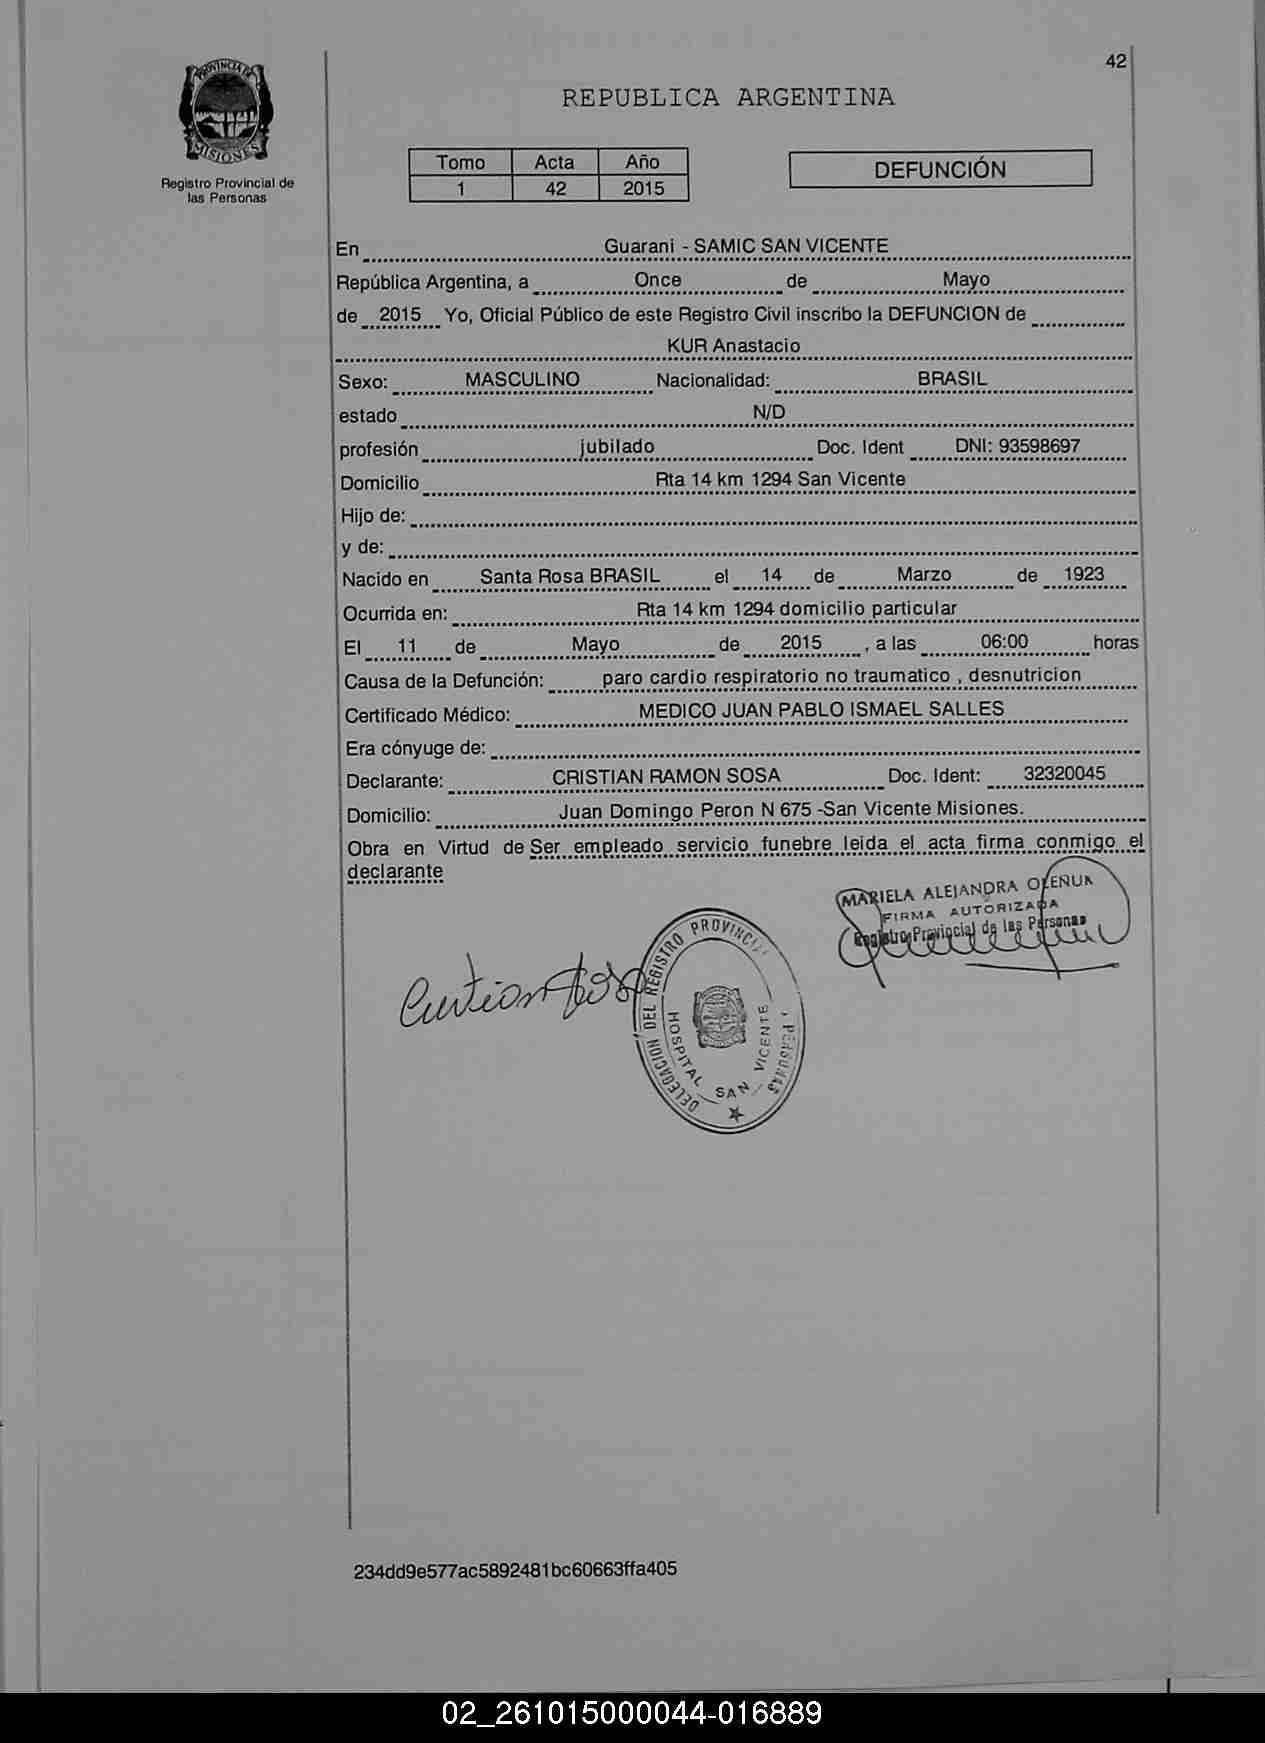 42
PROVINCIA DE
MISIONES
Registro Provincial de
las Personas
REPUBLICA ARGENTINA
Tomo Acta Año
1 42 2015
DEFUNCIÓN
En Guarani - SAMIC SAN VICENTE
República Argentina, a Once de Mayo
de 2015 Yo, Oficial Público de este Registro Civil inscribo la DEFUNCION de
KUR Anastacio
Sexo: MASCULINO Nacionalidad: BRASIL
estado N/D
profesión jubilado Doc. Ident DNI: 93598697
Domicilio Rta 14 km 1294 San Vicente
Hijo de:
y de:
Nacido en Santa Rosa BRASIL el 14 de Marzo de 1923
Ocurrida en: Rta 14 km 1294 domicilio particular
El 11 de Mayo de 2015 , a las 06:00 horas
Causa de la Defunción: paro cardio respiratorio no traumatico , desnutricion
Certificado Médico: MEDICO JUAN PABLO ISMAEL SALLES
Era cónyuge de:
Declarante: CRISTIAN RAMON SOSA Doc. Ident: 32320045
Domicilio: Juan Domingo Peron N 675 -San Vicente Misiones.
Obra en Virtud de Ser empleado servicio funebre leida el acta firma conmigo el
declarante
MARIELA ALEJANDRA OLEÑUK
FIRMA AUTORIZADA
Registro Provincial de las Personas
DELEGACION DEL REGISTRO PROVINCIAL PERSONAS
HOSPITAL SAN VICENTE
234dd9e577ac5892481bc60663ffa405
02_261015000044-016889